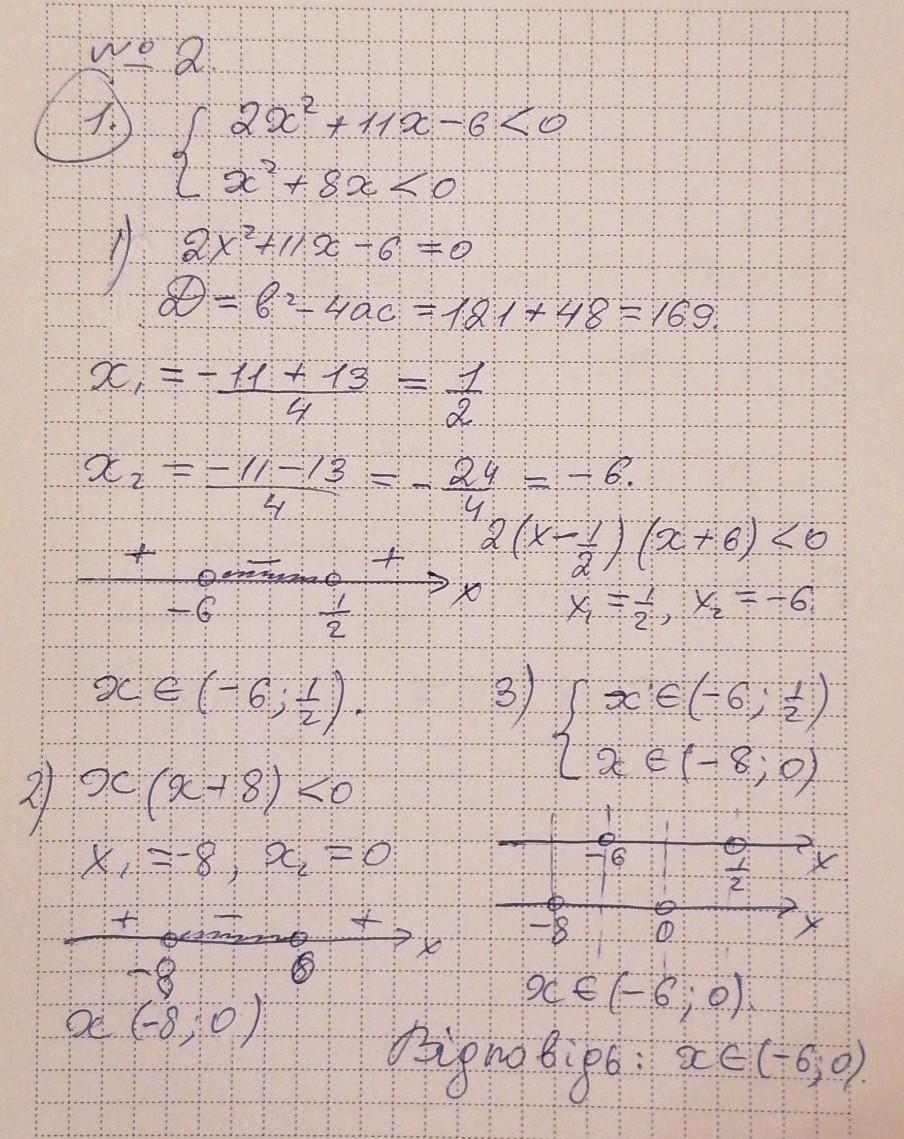 № 2.
1. { 2x² + 11x - 6 < 0
x² + 8x < 0
1) 2x² + 11x - 6 = 0
D = b² - 4ac = 121 + 48 = 169.
x₁ = (-11 + 13)/4 = 1/2
x₂ = (-11 - 13)/4 = -24/4 = -6.
2(x - 1/2)(x + 6) < 0
x₁ = 1/2, x₂ = -6.
+ - +
-6 1/2 x
x ∈ (-6; 1/2).
2) x(x + 8) < 0
x₁ = -8, x₂ = 0
+ - +
-8 0 x
x (-8; 0)
3) { x ∈ (-6; 1/2)
x ∈ (-8; 0)
-6 1/2 x
-8 0 x
x ∈ (-6; 0).
Відповідь: x ∈ (-6; 0).